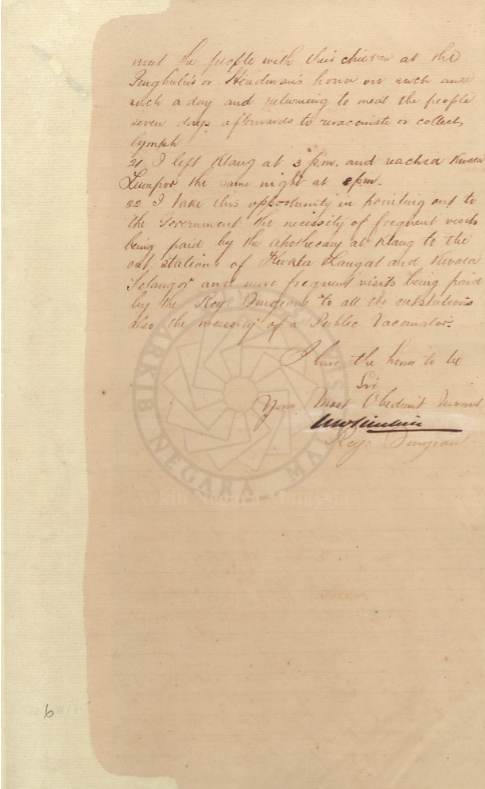 meet the people with their children at the
Penghulu's or Headman's house on such and
such a day and returning to meet the people
seven days afterwards to revaccinate or collect
lymph
21 I left Klang at 3 p.m. and reached Kwala
Lumpor the same night at 8 p.m.
22 I take this opportunity in pointing out to
the Government the necessity of frequent visits
being paid by the Apothecary at Klang to the
out stations of Kwala Langat and Kwala
Selangor and more frequent visits being paid
by the Resy Surgeon to all the outstations
also the necessity of a Public Vaccinator.
I have the honor to be
Sir
Your Most Obedient Servant
Resy: Surgeon
ARKIB NEGARA MALAYSIA
Arkib Negara Malaysia
6